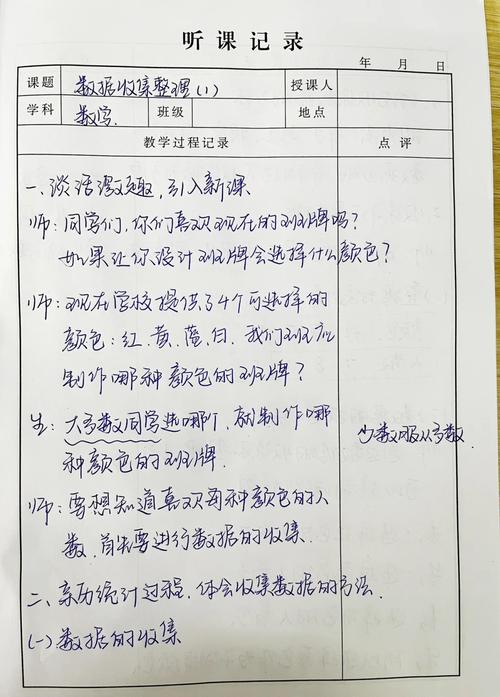 听课记录
年 月 日
课题 数据收集整理(1) 授课人
学科 数学. 班级 地点
教学过程记录 点评
一、谈话激趣,引入新课
师:同学们,你们喜欢现在的班牌吗?
如果让你设计班牌会选择什么颜色?
师:现在学校提供了4个可选择的
颜色:红、黄、蓝、白,我们班应
制作哪种颜色的班牌?
生:大多数同学选哪个,就制作哪
种颜色的班牌. 少数服从多数.
师:要想知道喜欢每种颜色的人
数,首先要进行数据的收集.
二、亲历统计过程,体会收集数据的方法.
(一)数据的收集